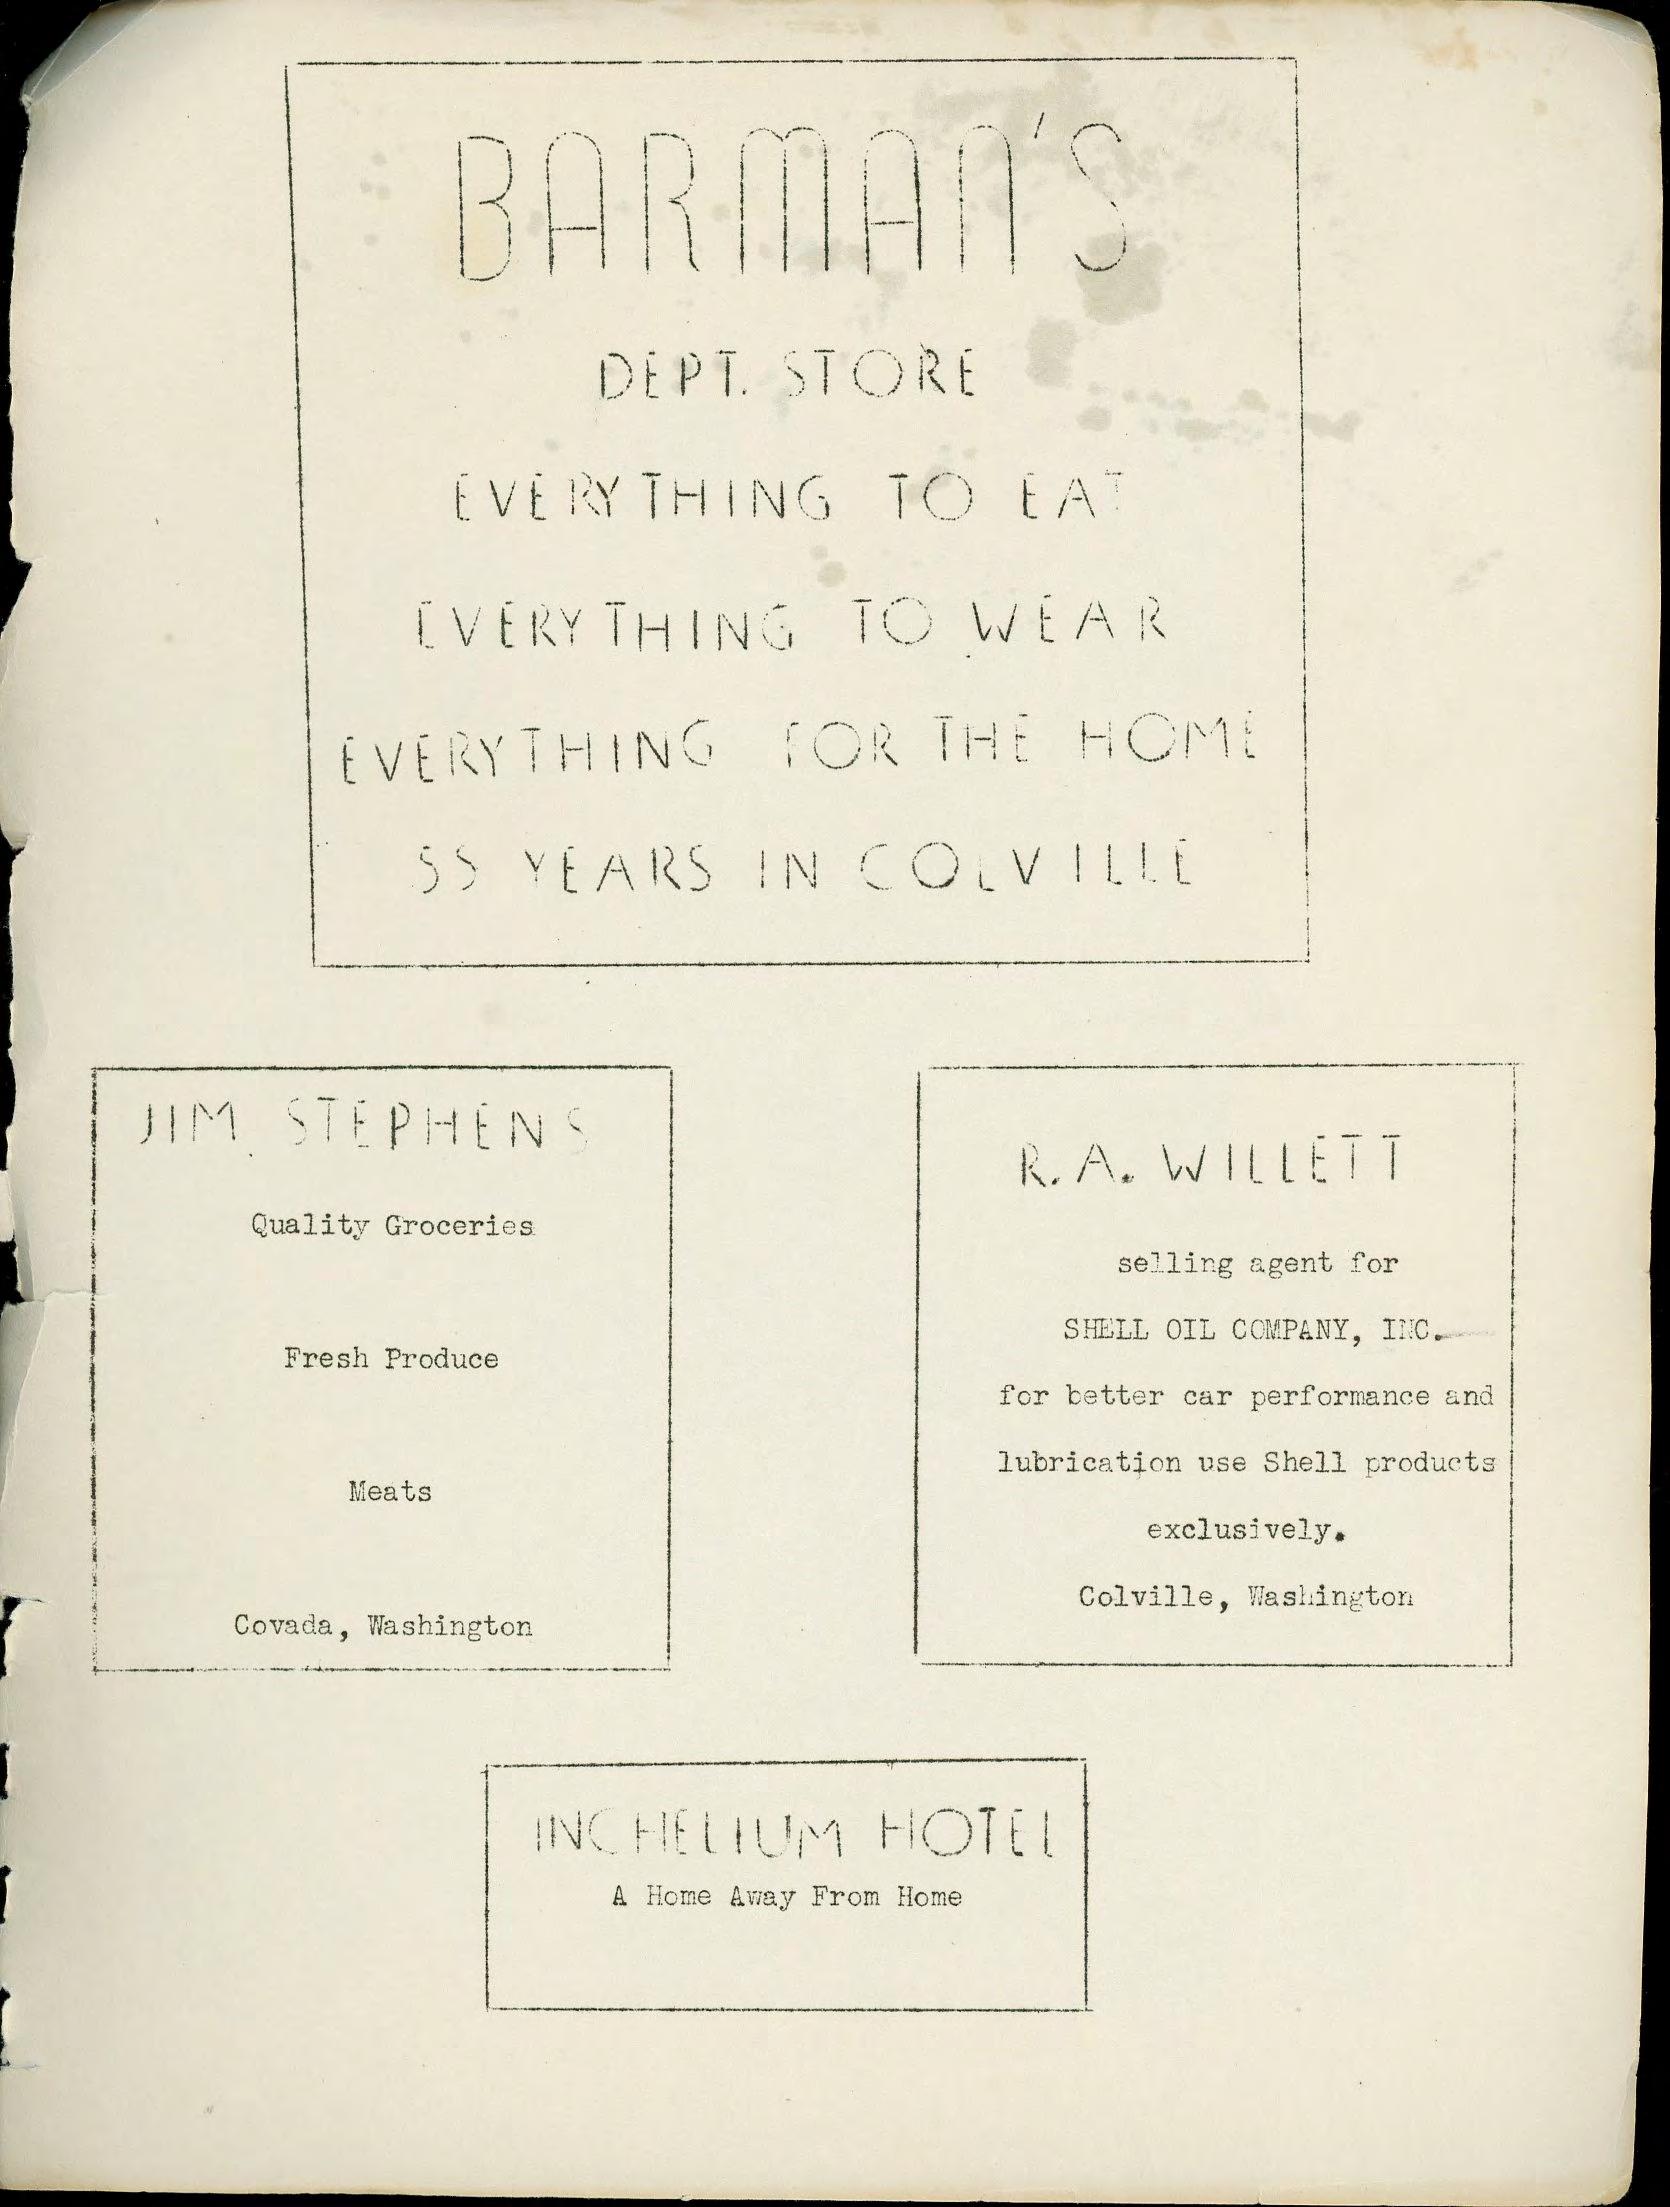 BARMAN'S
DEPT. STORE
EVERYTHING TO EAT
EVERYTHING TO WEAR
EVERYTHING FOR THE HOME
55 YEARS IN COLVILLE
JIM STEPHENS
Quality Groceries
Fresh Produce
Meats
Covada, Washington
R. A. WILLETT
selling agent for
SHELL OIL COMPANY, INC.
for better car performance and
lubrication use Shell products
exclusively.
Colville, Washington
INCHELIUM HOTEL
A Home Away From Home